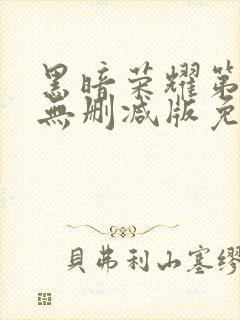 黑暗荣耀第
無删减版免
貝弗利山塞繆